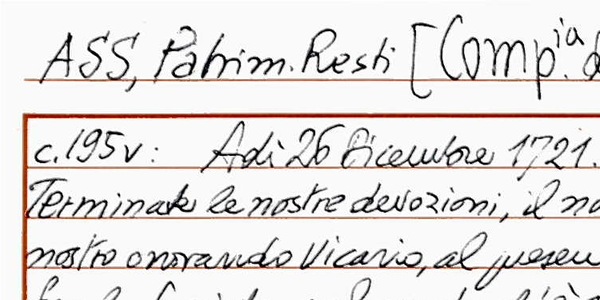 ASS, Patrim. Resti [Comp.ia d
c. 195v: Adi 26 Dicembre 1721.
Terminate le nostre devozioni, il no
nostro onorando Vicario, al presen